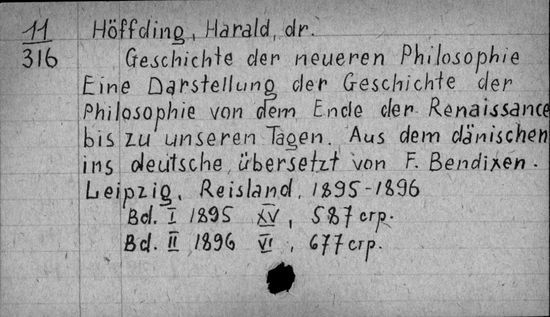 11
316
Höffding, Harald, dr.
Geschichte der neueren Philosophie
Eine Darstellung der Geschichte der
Philosophie von dem Ende der Renaissance
bis zu unseren Tagen. Aus dem dänischen
ins deutsche übersetzt von F. Bendixen.
Leipzig, Reisland, 1895-1896
Bd. I 1895 XV, 587 стр.
Bd. II 1896 VI, 677 стр.